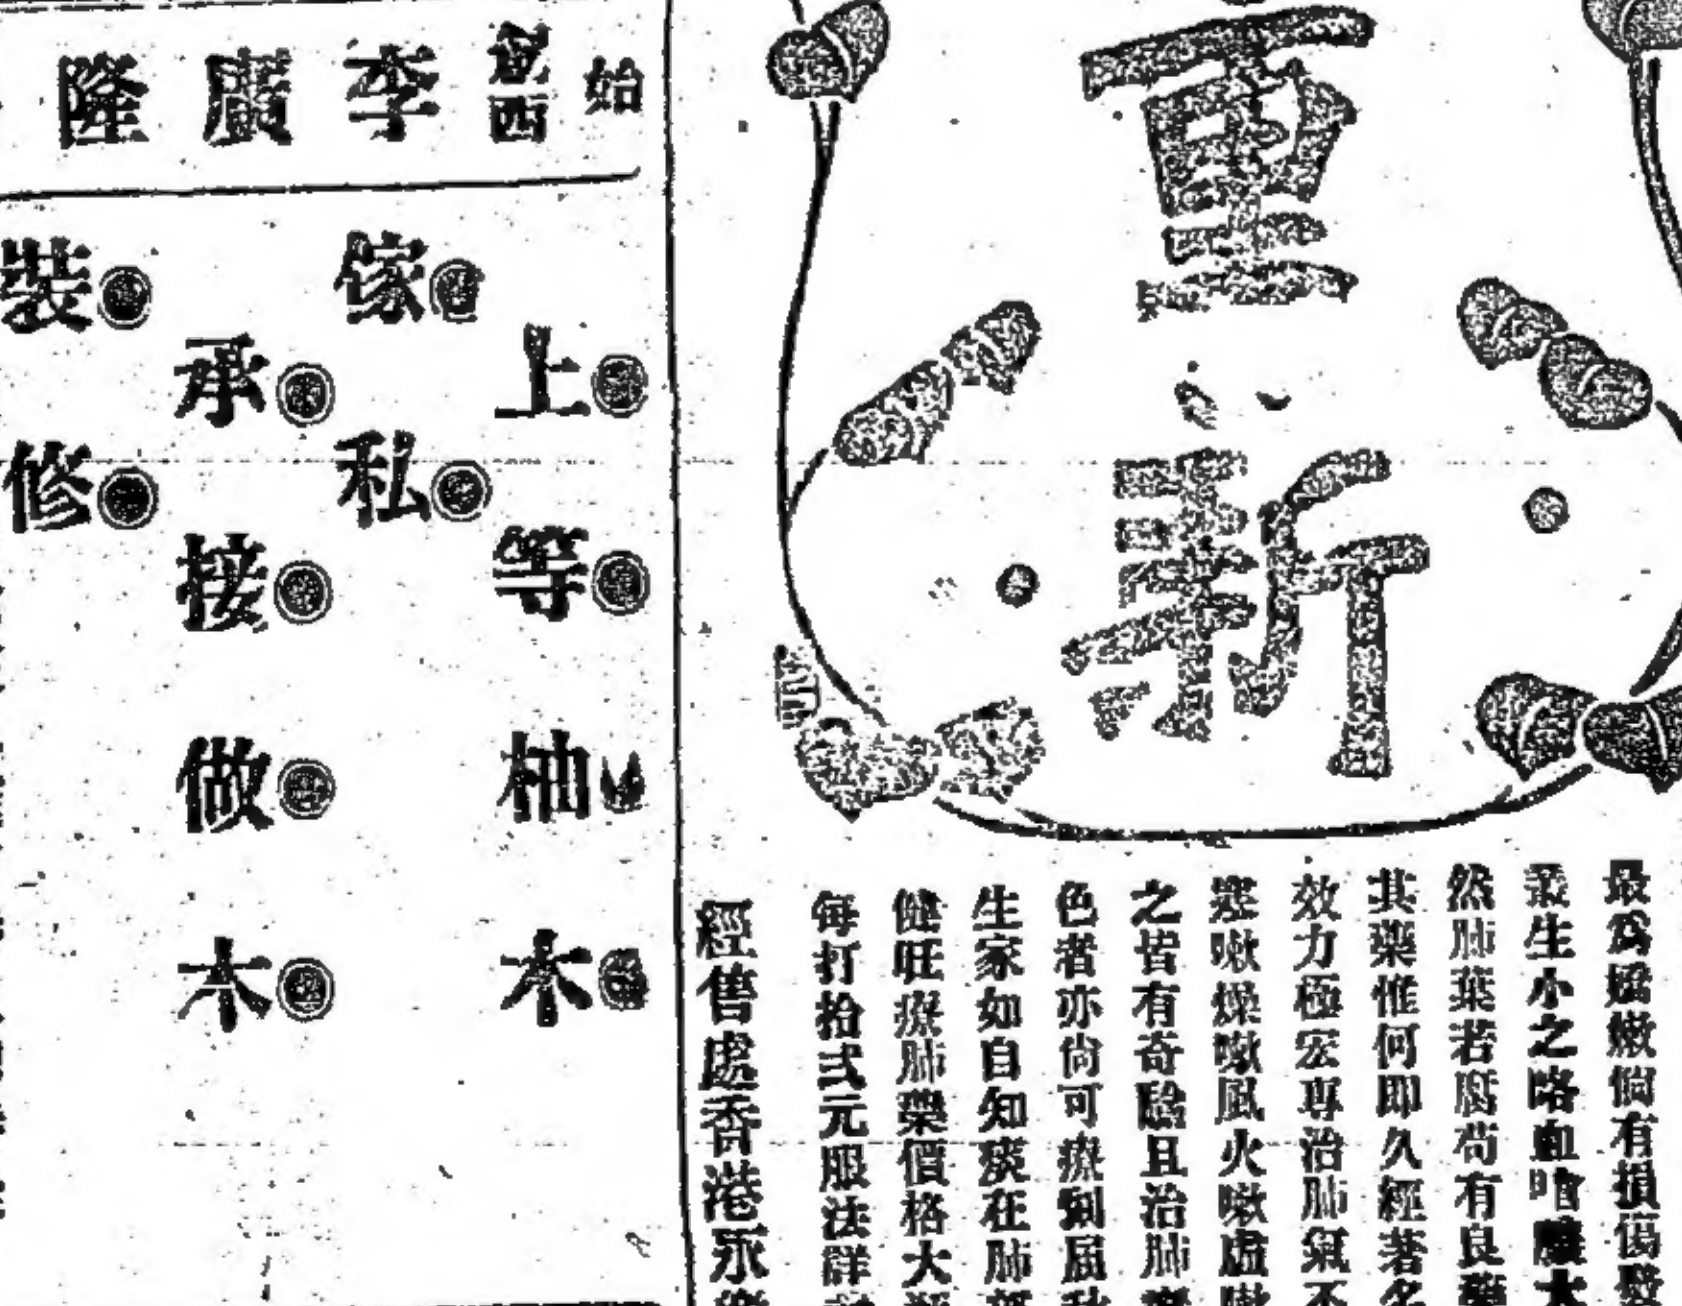 重新
最為嬌嫩倘有損傷
叢生小之咯血
然肺葉若腐苟有良
其藥惟何即久經著名
效力極宏專治肺氣不
嗽燥嗽風火嗽虛嗽
之皆有奇驗且治肺
色者亦尚可療到屆秋
生家如自知痰在肺
健旺療肺藥價格大
每打拾弍元服法詳
經售處香港永
始創西
李廣隆
上等柚木
傢私
承接做木
裝修